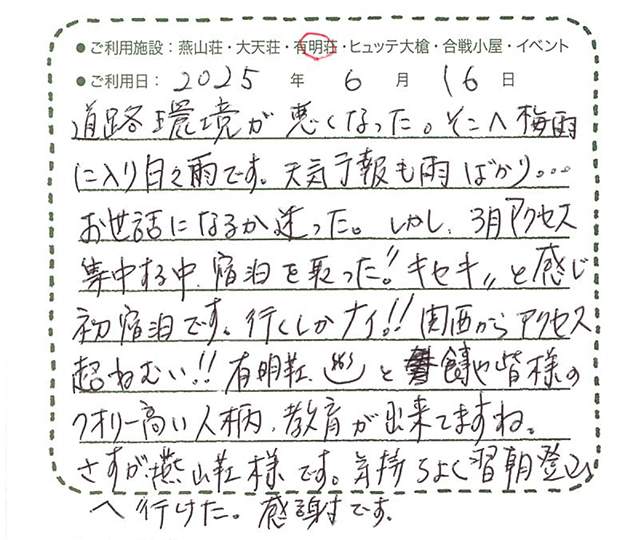 ●ご利用施設：燕山荘・大天荘・有明荘・ヒュッテ大槍・合戦小屋・イベント
●ご利用日：2025年6月16日
道路環境が悪くなった。そこへ梅雨
に入り日々雨です。天気予報も雨ばかり。…
お世話になるか迷った。しかし、3月アクセス
集中する中、宿泊を取った〝キセキ〟と感じ
初宿泊です。行くしかナイ!! 関西からアクセス
超ねむい!! 有明荘、♨と 食事や皆様の
クオリー高い人柄、教育が出来てますね。
さすが燕山荘様です。気持ちよく翌朝登山
へ行けた。感謝です。